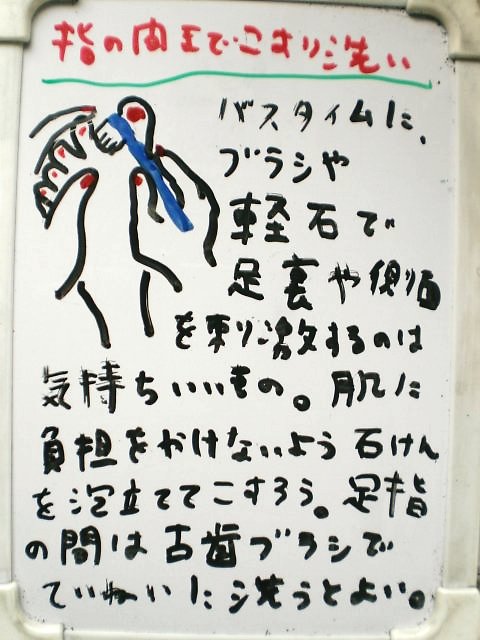 指の間までこすり洗い
バスタイムに、
ブラシや
軽石で
足裏や側面
を刺激するのは
気持ちいいもの。肌に
負担をかけないよう石けん
を泡立ててこすろう。足指
の間は古歯ブラシで
ていねいに洗うとよい。